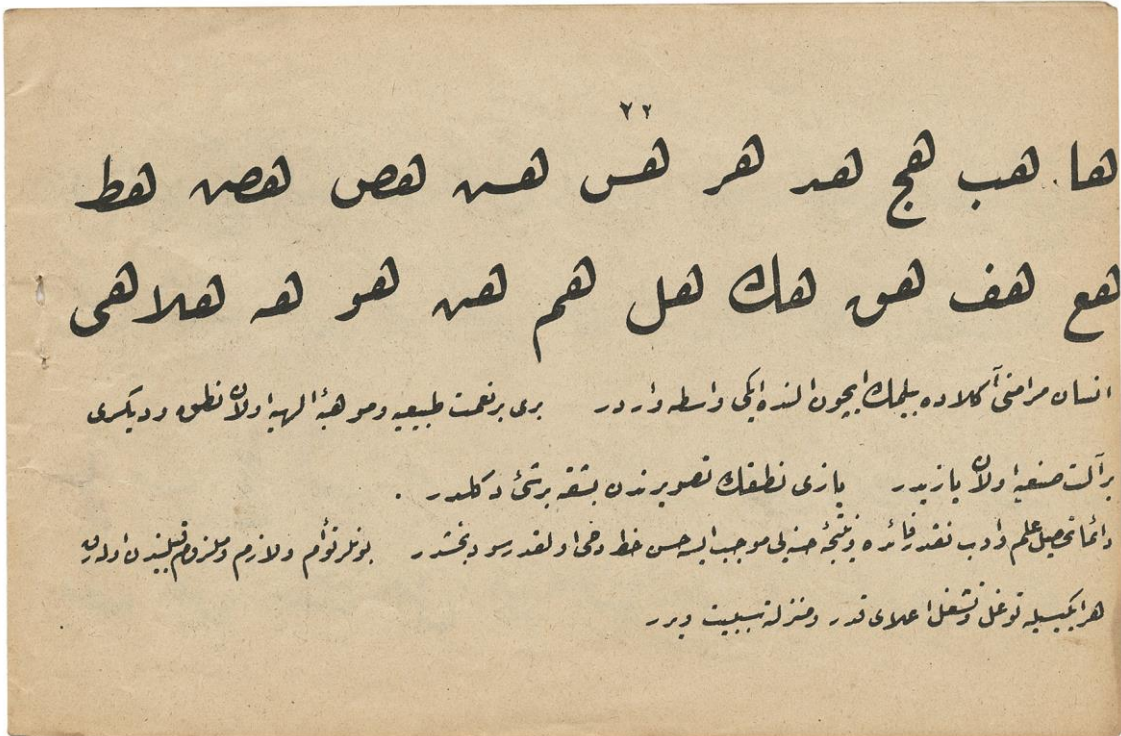 ٢٢
ها هب هج هد هر هس هس هص هص هط
هع هف هق هك هل هم هن هو هه هلا هى
انسان مرامنى آكلاده بيلمك ايچون النده ايكى واسطه واردر برى بر نعمت طبيعيه وموهبۀ الهيه اولان نطق وديكرى
بر آلت صنعيه اولان يازيدر يازى نطقك تصويرندن بشقه برشئ دكلدر .
دائما تحصيل علم وادب نقدر فائده ونتيجۀ حسنه يى موجب ايسه حسن خط دخى اولقدر سودبخشدر بونلر توأم ولازم وملزوم قبيلندن اولان
هر ايكيسيله توغل وتشغل اعلاى قدر ومنزلته سببيت ويرر